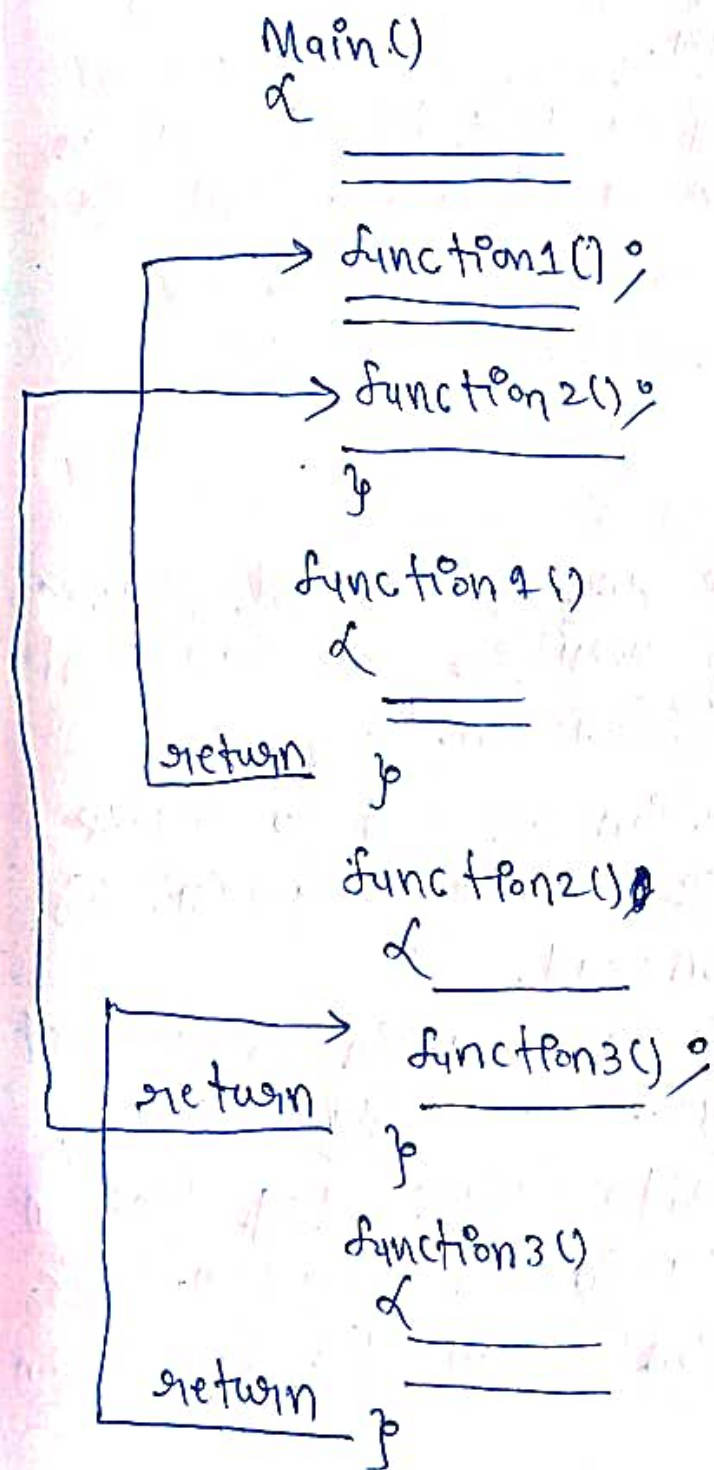 Main()
{
function1();
function2();
}
function1()
{
return }
function2()
{
function3();
return
}
function3()
{
return }